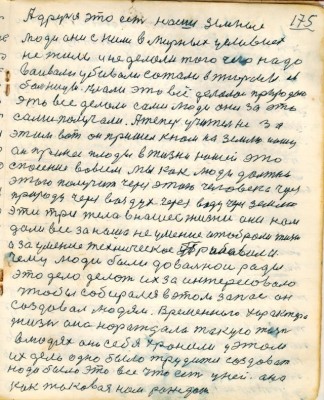 175
А другая это ест наши Земные
люди они с ними в мирных условиях
не жили и не делали того чего надо
воевали убивали сотали в тюрьмы и
больницы. Клали это всё делалось природою
это все делали сами люди они за это
сами получали. А теперь учитель не за
этим вот он пришел к нам на землю нашу
он принес плоды в жизнь нашей это
спасение во всем мы как люди должны
этого получить через этого человека через
природу через воздух через воду через землю
эти три тела в нашей жизни они нам
дали все за наше не умение
а за умение техническое
чему люди были довольной ради
это дело делож их за интересовало
чтобы собирался в этом запас он
создовал людям. Временного характера
жизнь она нарождала такую
в людях они себя хронили у этом
их дело одно было трудится создоват
надо было это все что ест у ней. она
как таковая нам рождала